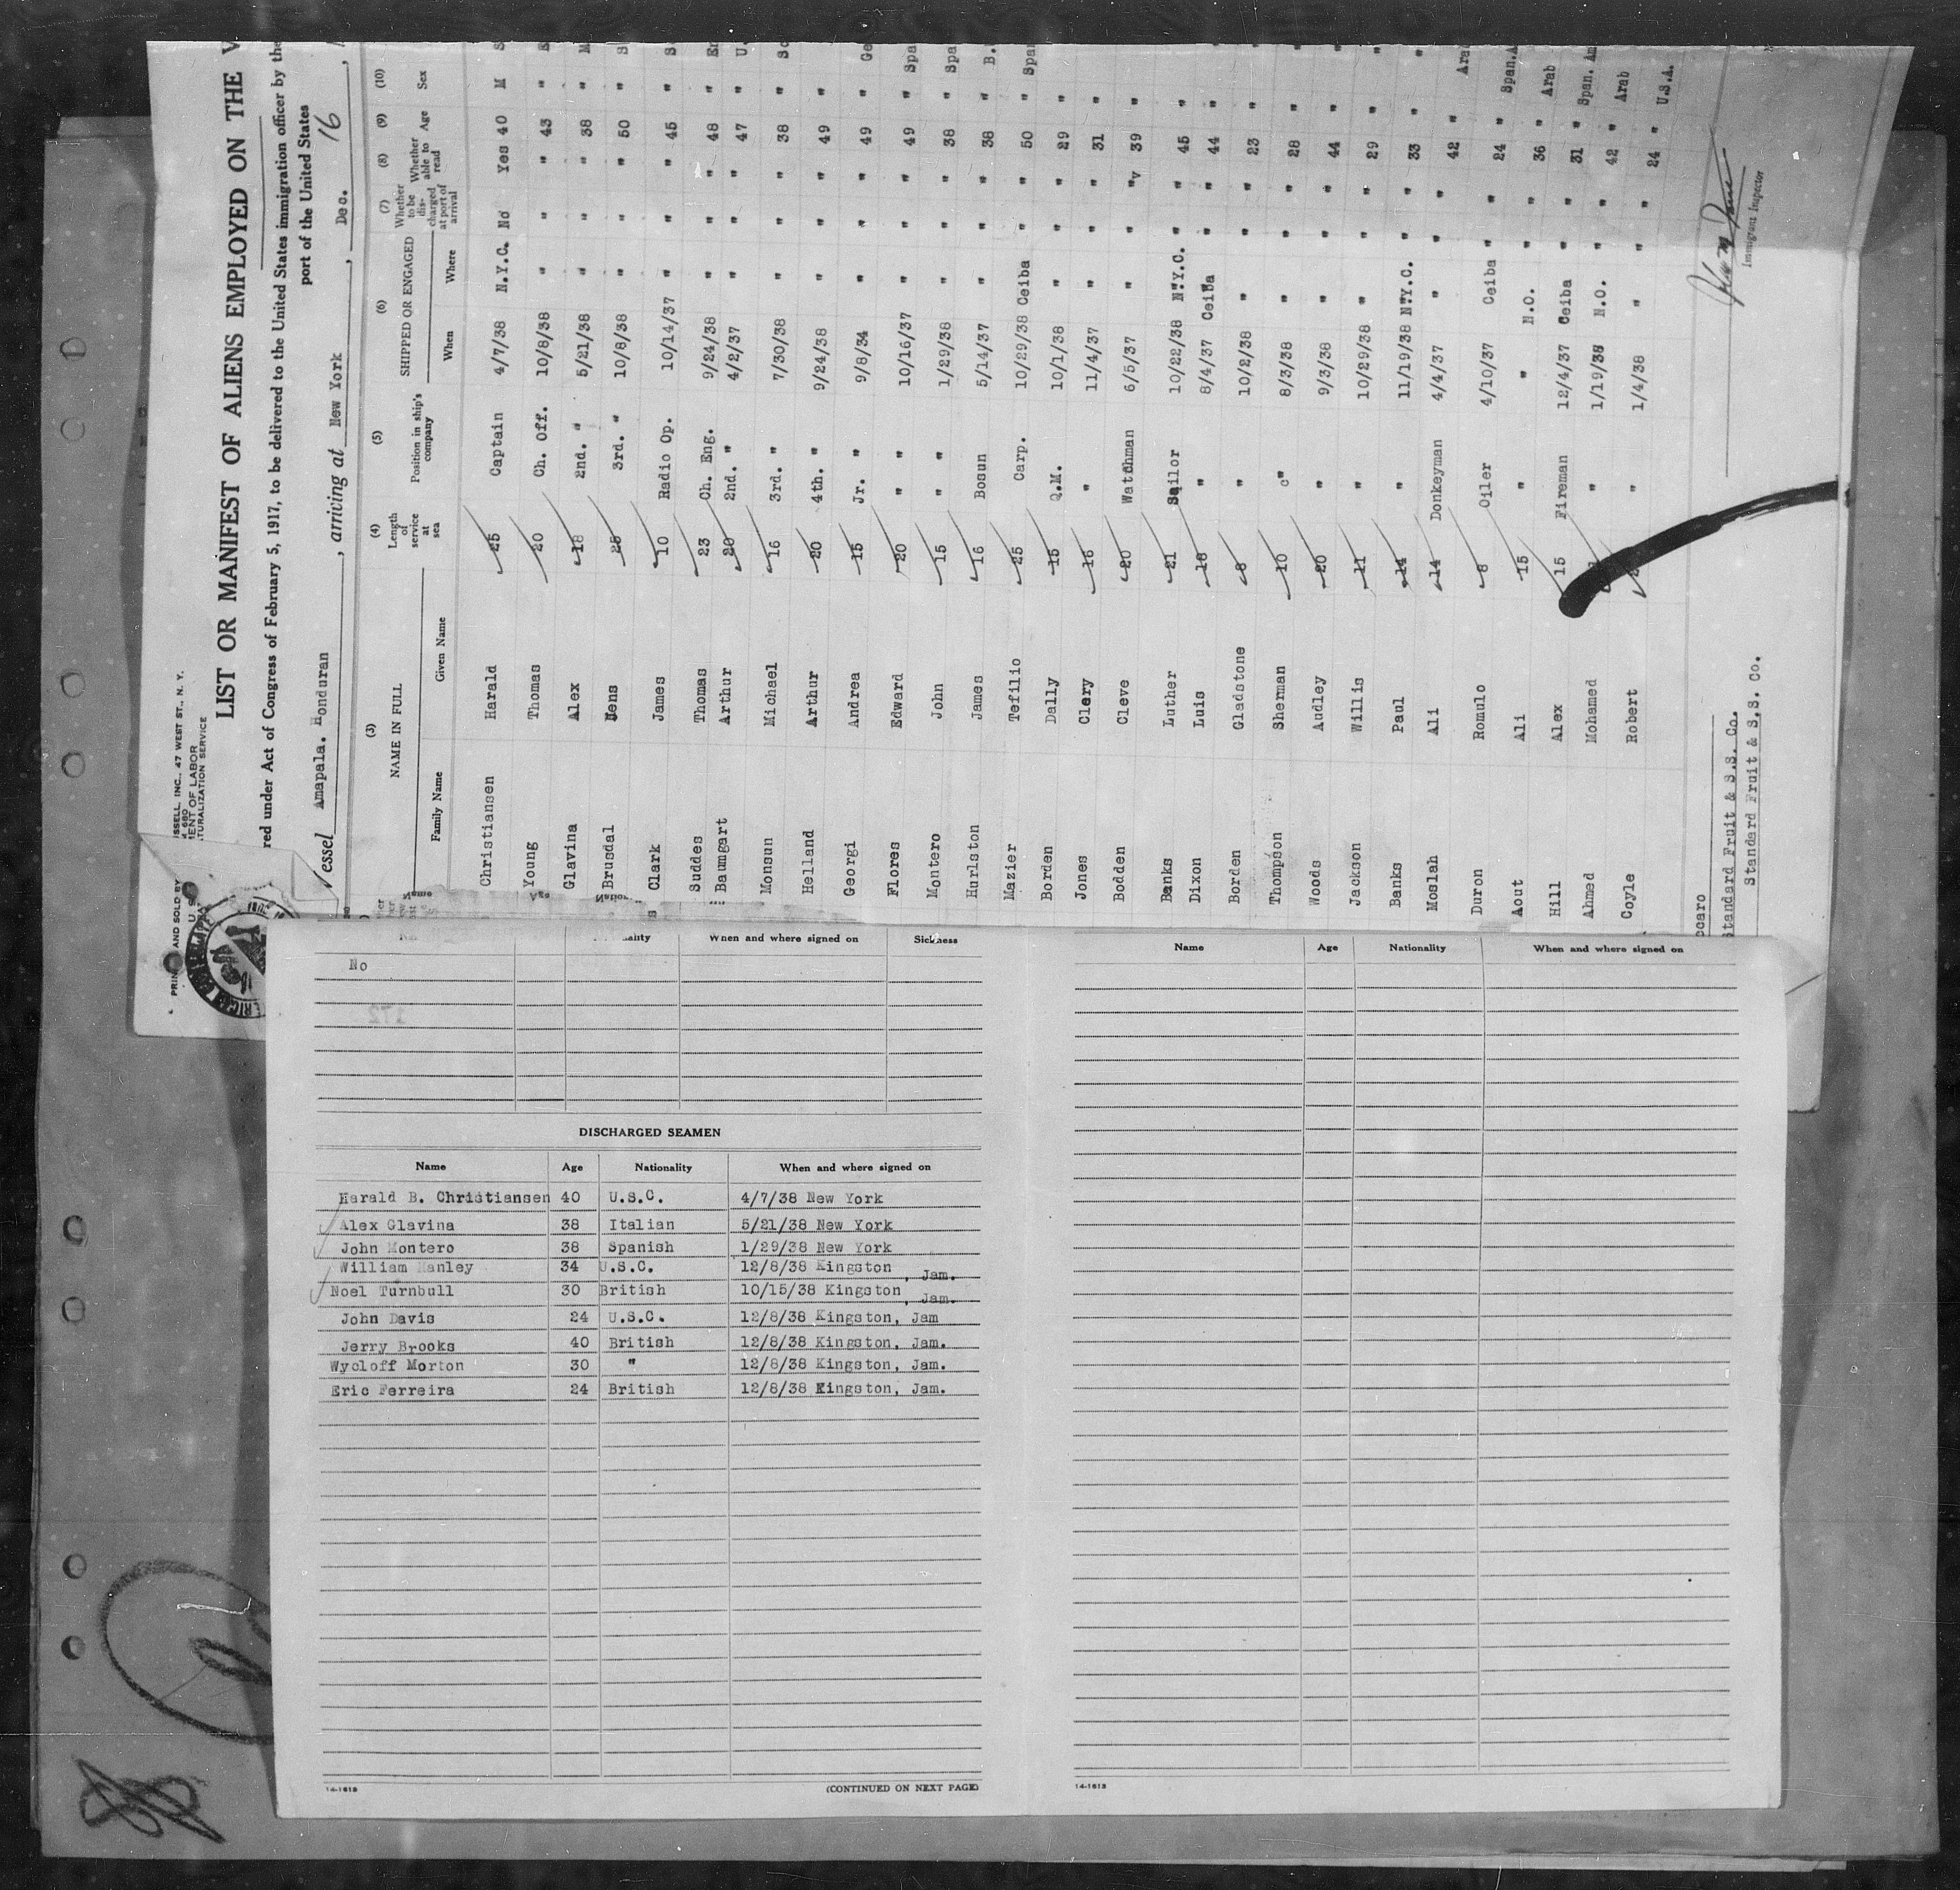 SSELL, INC., 47 WEST ST., N. Y.
680
ENT OF LABOR
TURALIZATION SERVICE
AND SOLD BY
LIST OR MANIFEST OF ALIENS EMPLOYED ON THE V
red under Act of Congress of February 5, 1917, to be delivered to the United States immigration officer by the
port of the United States
Vessel Amapala. Honduran , arriving at New York , Dec. 16 ,
(3) (4) (5) (6) (7) (8) (9) (10)
NAME IN FULL Length of service at sea Position in ship's company SHIPPED OR ENGAGED Whether to be discharged at port of arrival Whether able to read Age Sex
Family Name Given Name When Where
Christiansen Harald 25 Captain 4/7/38 N.Y.C. No Yes 40 M S
Young Thomas 20 Ch. Off. 10/8/38 " " " 43 " E
Glavina Alex 18 2nd. " 5/21/38 " " " 38 " M
Brusdal Jens 25 3rd. " 10/8/38 " " " 50 " S
Clark James 10 Radio Op. 10/14/37 " " " 45 " S
Suddes Thomas 23 Ch. Eng. 9/24/38 " " " 48 " En
Baumgart Arthur 20 2nd. " 4/2/37 " " " 47 " U.
Monsun Michael 16 3rd. " 7/30/38 " " " 38 " Sc
Helland Arthur 20 4th. " 9/24/38 " " " 49 "
Georgi Andrea 15 Jr. " 9/8/34 " " " 49 " Ge
Flores Edward 20 " " 10/16/37 " " " 49 " Spa
Montero John 15 " " 1/29/38 " " " 38 " Spa
Hurlston James 16 Bosun 5/14/37 " " " 38 " B.
Mazier Tefilio 25 Carp. 10/29/38 Ceiba " " 50 " Span
Borden Dally 15 Q.M. 10/1/38 " " " 29 "
Jones Clery 16 " 11/4/37 " " " 31 "
Bodden Cleve 20 Watchman 6/5/37 " " "v 39 "
Banks Luther 21 Sailor 10/22/38 N.Y.C. " " 45 "
Dixon Luis 18 " 8/4/37 Ceiba " " 44 "
Borden Gladstone 8 " 10/2/38 " " " 23 "
Thompson Sherman 10 c" 8/3/38 " " " 28 "
Woods Audley 20 " 9/3/38 " " " 44 "
Jackson Willis 11 " 10/29/38 " " " 29 "
Banks Paul 14 " 11/19/38 N.Y.C. " " 33 "
Moslah Ali 14 Donkeyman 4/4/37 " " " 42 " Ara
Duron Romulo 8 Oiler 4/10/37 Ceiba " " 24 " Span.A
Aout Ali 15 " " N.O. " " 36 " Arab
Hill Alex 15 Fireman 12/4/37 Ceiba " " 31 " Span. Am
Ahmed Mohamed " 1/19/38 N.O. " " 42 " Arab
Coyle Robert " 1/4/38 " " " 24 " U.S.A.
Immigrant Inspector
Standard Fruit & S.S. Co.
Standard Fruit & S.S. Co.
ality When and where signed on Sickness
No
172
DISCHARGED SEAMEN
Name Age Nationality When and where signed on
Harald B. Christiansen 40 U.S.C. 4/7/38 New York
Alex Glavina 38 Italian 5/21/38 New York
John Montero 38 Spanish 1/29/38 New York
William Manley 34 U.S.C. 12/8/38 Kingston, Jam.
Noel Turnbull 30 British 10/15/38 Kingston, Jam.
John Davis 24 U.S.C. 12/8/38 Kingston, Jam
Jerry Brooks 40 British 12/8/38 Kingston, Jam.
Wycloff Morton 30 " 12/8/38 Kingston, Jam.
Eric Ferreira 24 British 12/8/38 Kingston, Jam.
14-1613 (CONTINUED ON NEXT PAGE)
Name Age Nationality When and where signed on
14-1613